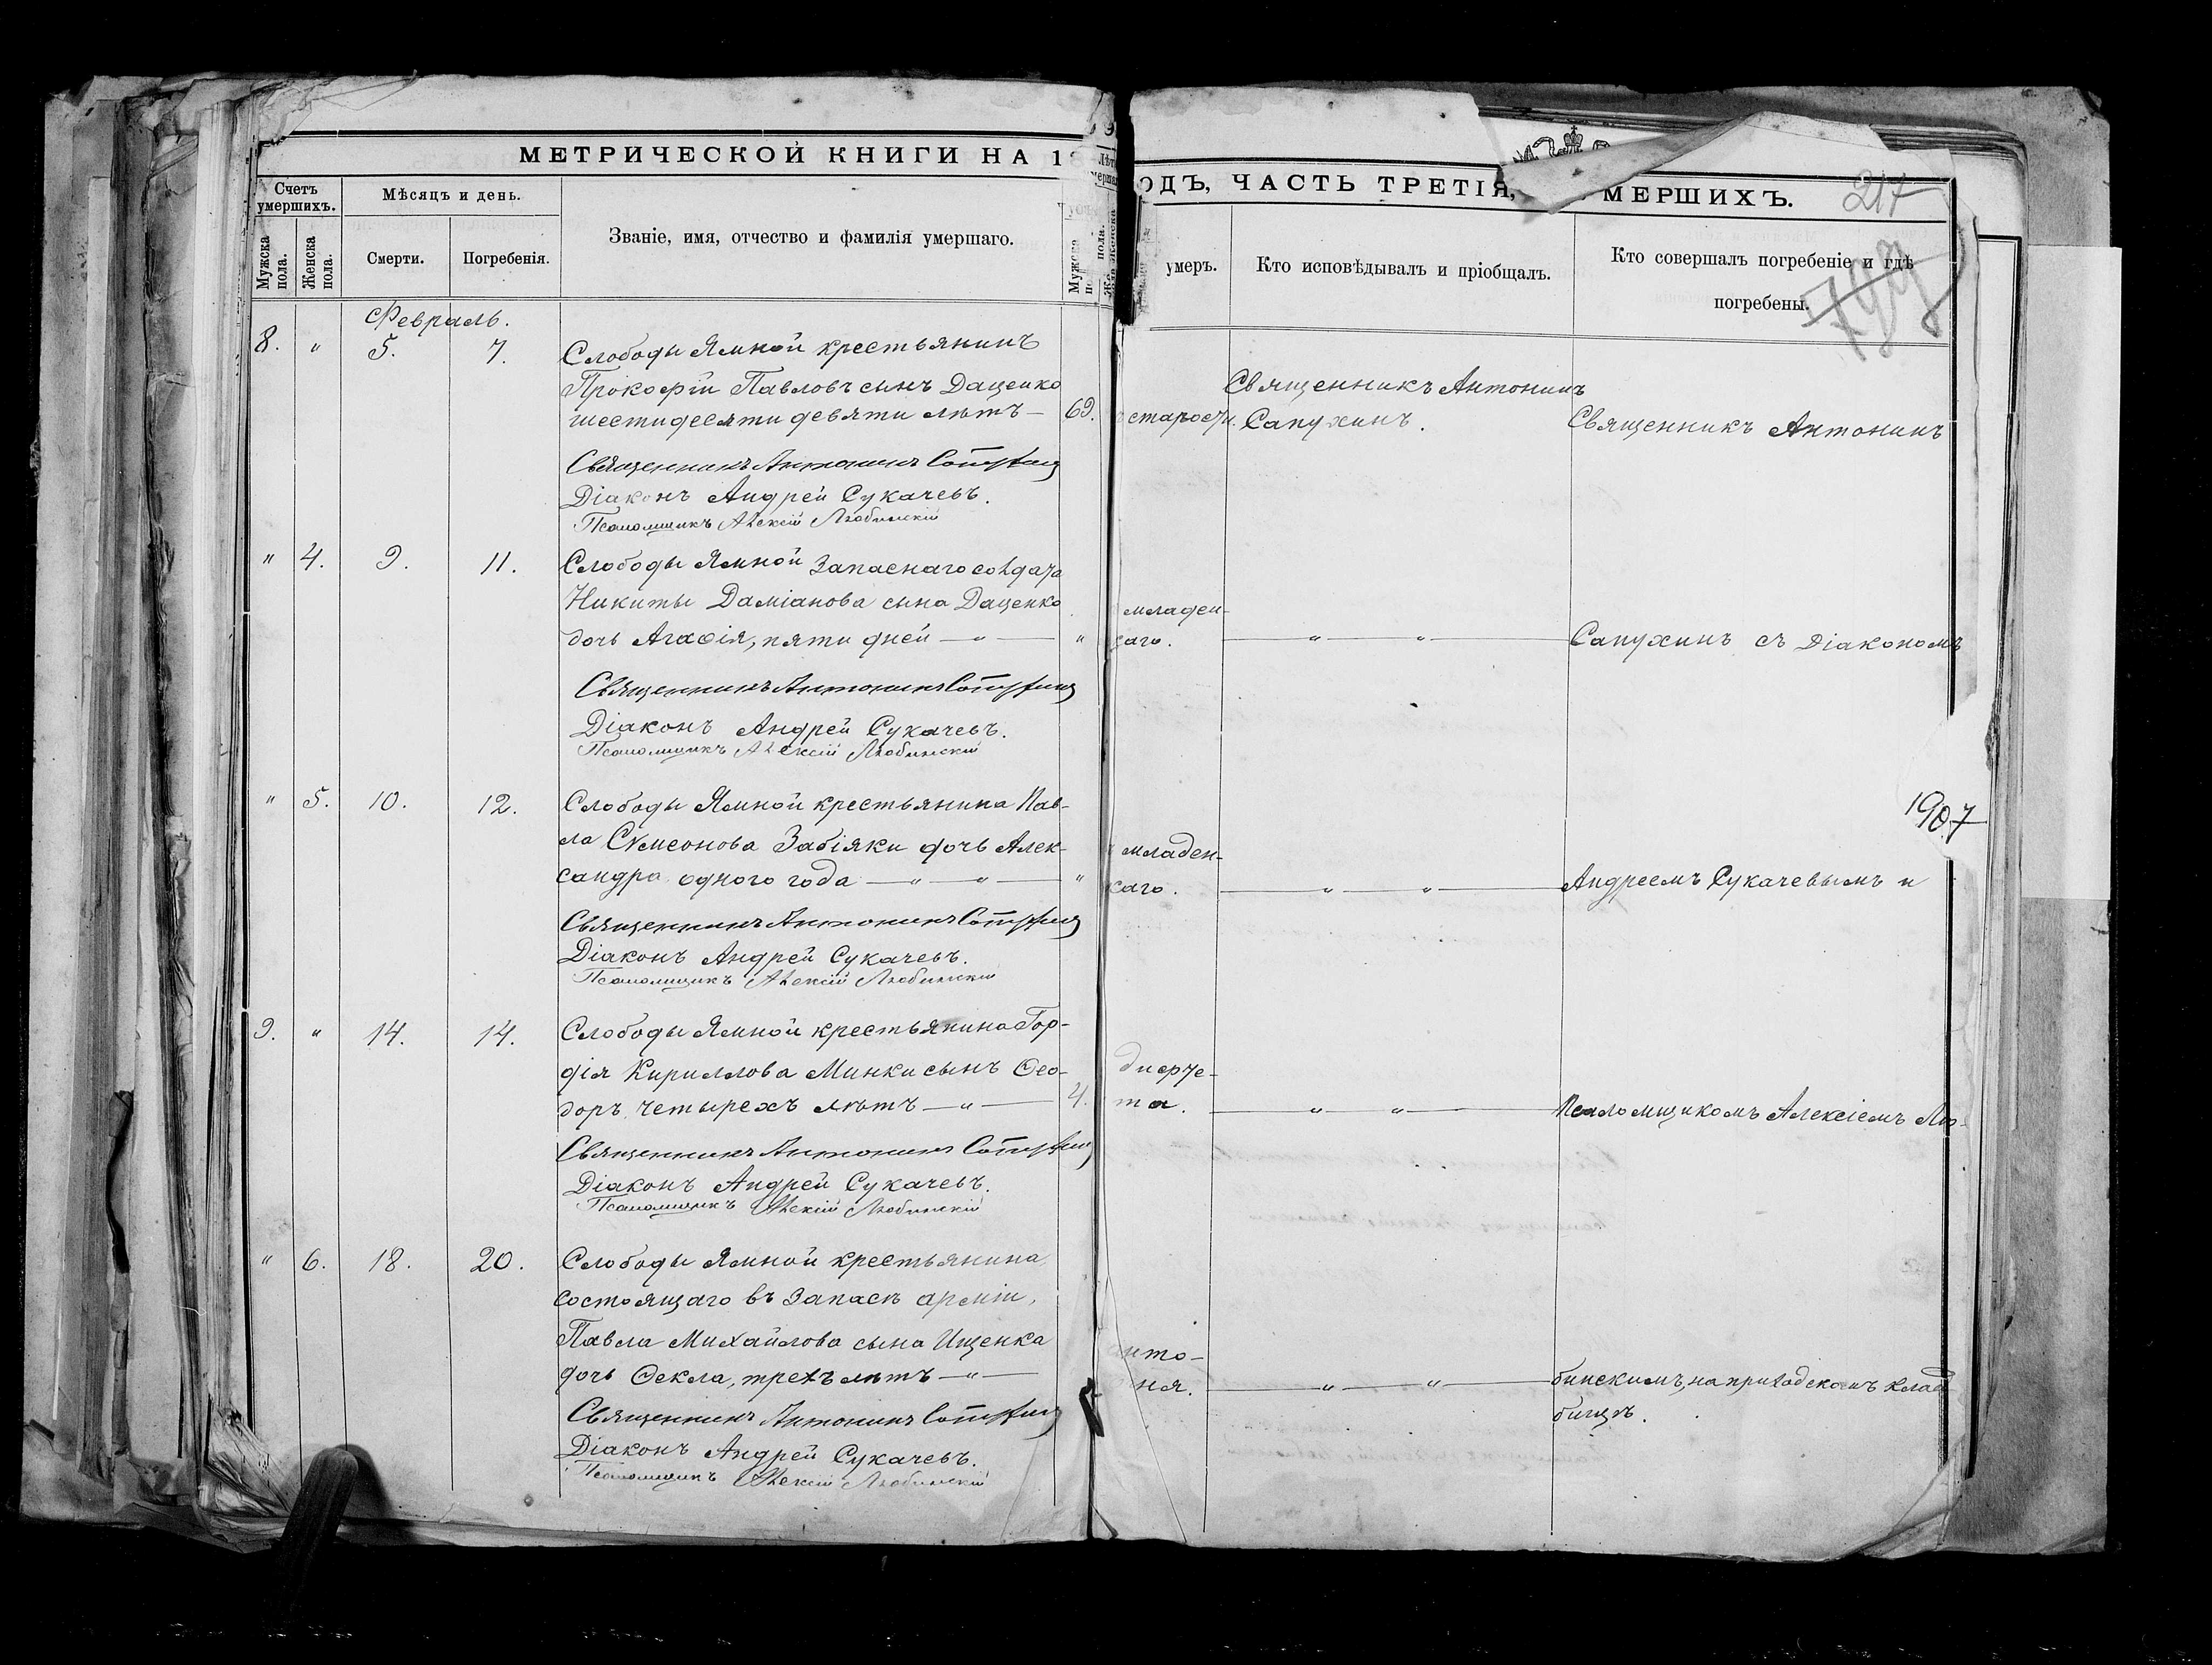 МЕТРИЧЕСКОЙ КНИГИ НА 18
ОДЪ, ЧАСТЬ ТРЕТІЯ, МЕРШИХЪ.
217
Счетъ умершихъ.
Мѣсяцъ и день.
Мужска пола.
Женска пола.
Смерти.
Погребенія.
Званіе, имя, отчество и фамилія умершаго.
умеръ.
Кто исповѣдывалъ и пріобщалъ.
Кто совершалъ погребеніе и гдѣ
погребены.
Февраль.
8. " 5. 7. Слободы Ямной крестьянинъ
Прокофій Павловъ сынъ Даценко
шестидесяти девяти лѣтъ — 69. старости. Священникъ Антонинъ
Сапухинъ. Священникъ Антонинъ
Священникъ Антонинъ Сапухинъ
Діаконъ Андрей Сукачевъ.
Псаломщикъ Алексій Любинскій
" 4. 9. 11. Слободы Ямной запаснаго солдата
Никиты Даміанова сына Даценко младен-
дочь Агафія, пяти дней — " — " каго. — " — " — Сапухинъ съ Діакономъ
Священникъ Антонинъ Сапухинъ
Діаконъ Андрей Сукачевъ.
Псаломщикъ Алексій Любинскій
" 5. 10. 12. Слободы Ямной крестьянина Пав-
ла Сѵмеонова Забіяки дочь Алек- младен-
сандра одного года — " — " — " каго. — " — " — Андреемъ Сукачевымъ и
1907
Священникъ Антонинъ Сапухинъ
Діаконъ Андрей Сукачевъ.
Псаломщикъ Алексій Любинскій
9. " 14. 14. Слободы Ямной крестьянина Гор-
дія Кириллова Минки сынъ Ѳео- дифте-
доръ, четырехъ лѣтъ — " — 4. та. — " — " — Псаломщикомъ Алексіемъ Лю-
Священникъ Антонинъ Сапухинъ
Діаконъ Андрей Сукачевъ.
Псаломщикъ Алексій Любинскій
" 6. 18. 20. Слободы Ямной крестьянина
состоящаго въ запасѣ арміи,
Павла Михайлова сына Ищенка
дочь Ѳекла, трехъ лѣтъ — " — ня. — " — " — бинскимъ, на приходскомъ клад
бищѣ.
Священникъ Антонинъ Сапухинъ
Діаконъ Андрей Сукачевъ.
Псаломщикъ Алексій Любинскій